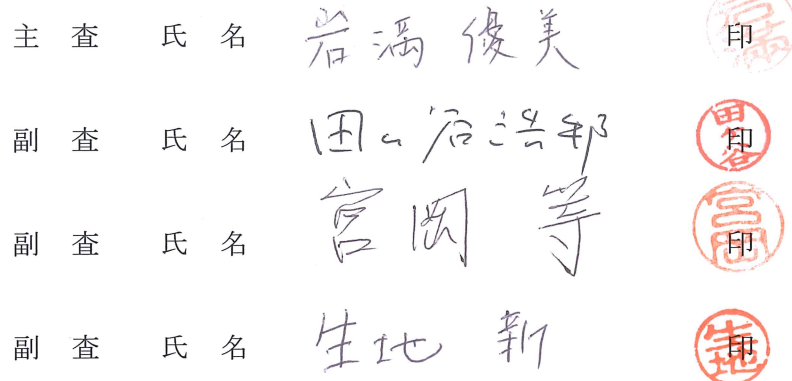 主 査 氏 名 岩満 優美 印
副 査 氏 名 田ヶ谷浩邦 印
副 査 氏 名 宮岡 等 印
副 査 氏 名 生地 新 印